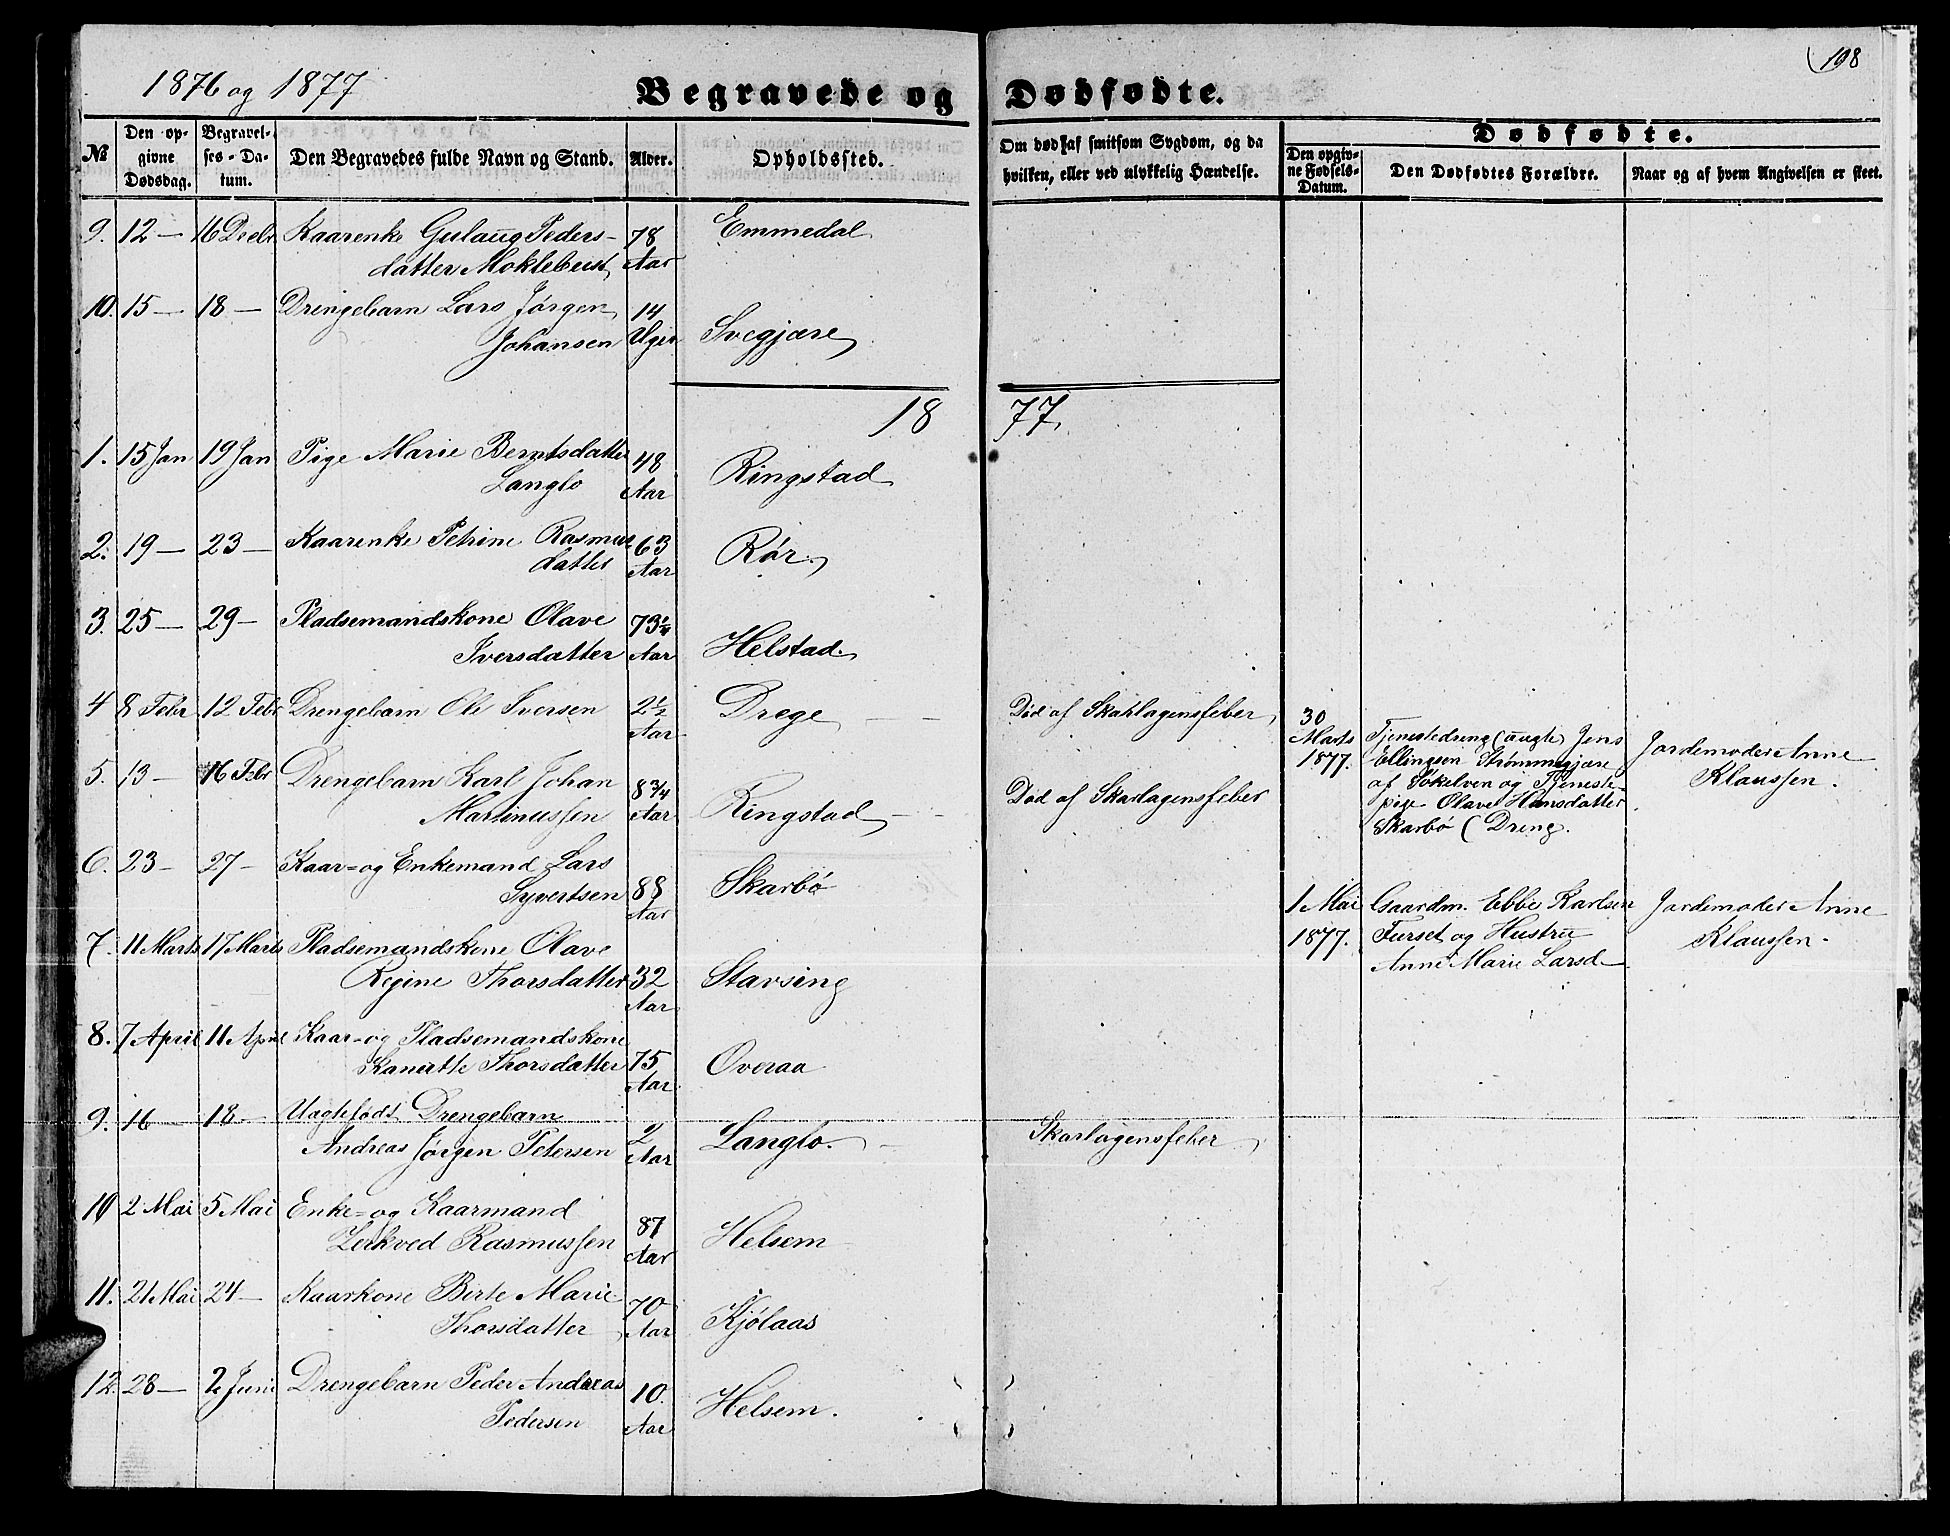 1876 og 1877
Begravede og Dødfødte.
198
№
Den opgivne Dødsdag.
Begravelses-Datum.
Den Begravedes fulde Navn og Stand.
Alder.
Opholdssted.
Om død af smitsom Sygdom, og da hvilken, eller ved ulykkelig Hændelse.
Dødfødte.
Den opgivne Fødsels-Datum.
Den Dødfødtes Forældre.
Naar og af hvem Angivelsen er skeet.
9. 12 — 16 Decbr Kaarenke Gulaug Peders- 78 Emmedal
datter Moklebust Aar
10. 15 — 18 — Drengebarn Lars Jørgen 14
Johansen Uger Svegjære
18 77.
1. 15 Jan 19 Jan Pige Marie Berntsdatter 48
Langlo Aar Ringstad
2. 19 — 23 — Kaarenke Petrine Rasmus 63
datter Aar Rør.
3. 25 — 29 — Pladsemandskone Olave 73¼
Iversdatter Aar Helstad.
4 8 Febr 12 Febr Drengebarn Ole Iversen 2½ Drege — — Død af Skarlagensfeber
Aar
5. 13 — 16 Febr Drengebarn Karl Johan 8¾
Martinussen Aar Ringstad — - Død af Skarlagensfeber
6. 23 — 27 — Kaar- og Enkemand Lars
Syvertsen 88 Skarbø
Aar
7. 11 Marts 17 Marts Pladsemandskone Olave
Regine Thorsdatter 32 Stavsing
Aar
8. 7 April 11 April Kaar- og Pladsemandskone
Thorsdatter 75 Overaa
Aar
9. 16 — 18 — Uægtefødt Drengebarn
Andreas Jørgen Petersen 2 Langlo. — Skarlagensfeber
Aar
10 2 Mai 5 Mai Enke- og Kaarmand
Rasmussen 87 Helsem
Aar
11. 21 Mai 24 — Kaarkone Birte Marie 70
Thorsdatter Aar Kjølaas
12. 28 — 2 Juni Drengebarn Peder Andreas 10.
Pedersen Aar Helsem.
30
Marts
1877.
Tjenestedreng (uægte) Jens
Ellingsen Strømmegjære
af Søkelven og Tjeneste-
pige Olave Hansdatter
Skarbø (Dreng.
Jordemoder Anne
Klaussen.
1 Mai
1877.
Gaardm. Ebbe Karlsen
Furset og Hustru
Anne Marie Larsd —
Jordemoder Anne
Klaussen.